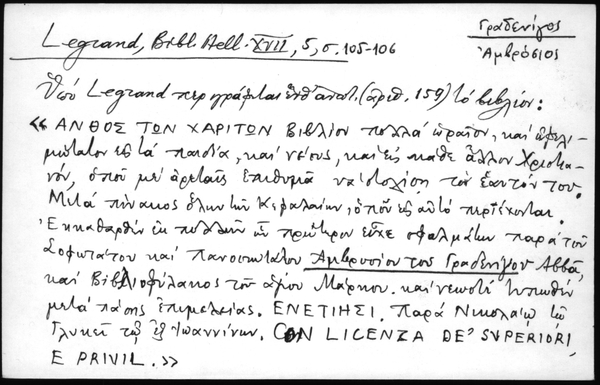 Γραδενίγος
Ἀμβρόσιος
Legrand, Bibl. Hell. XVII, 5, σ. 105-106
Ὑπό Legrand περιγράφεται ἐνθ' ἀνωτ. (ἀριθ. 159) τό βιβλίον:
« ΑΝΘΟΣ ΤΩΝ ΧΑΡΙΤΩΝ Βιβλίον πολλά ὡραῖον, καί ὠφελι-
μώτατον εἰς τά παιδία, καί νέους, καί εἰς κάθε ἄλλον Χριστια-
νόν, ὁποῦ μέ ἀρεταῖς ἐπιθυμᾶ νά στολίση τόν ἑαυτόν του.
Μετά πίνακος ὅλων τῶν Κεφαλαίων, ὁποῦ εἰς αὐτό περιέχονται.
Ἐκκαθαρθέν ἐκ πολλῶν ὧν πρώτερον εἶχε σφαλμάτων παρά τοῦ
Σοφωτάτου καί πανοσιωτάτου Ἀμβροσίου τοῦ Γραδενίγου Ἀββᾶ,
καί Βιβλιοφύλακος τοῦ ἁγίου Μάρκου. καί νεωστί τυπωθέν
μετά πάσης ἐπιμελείας. ΕΝΕΤΙΗΣΙ. Παρά Νικολάῳ τῷ
Γλυκεῖ τῷ ἐξ Ἰωαννίνων. CON LICENZA DE' SUPERIORI,
E PRIVIL. »